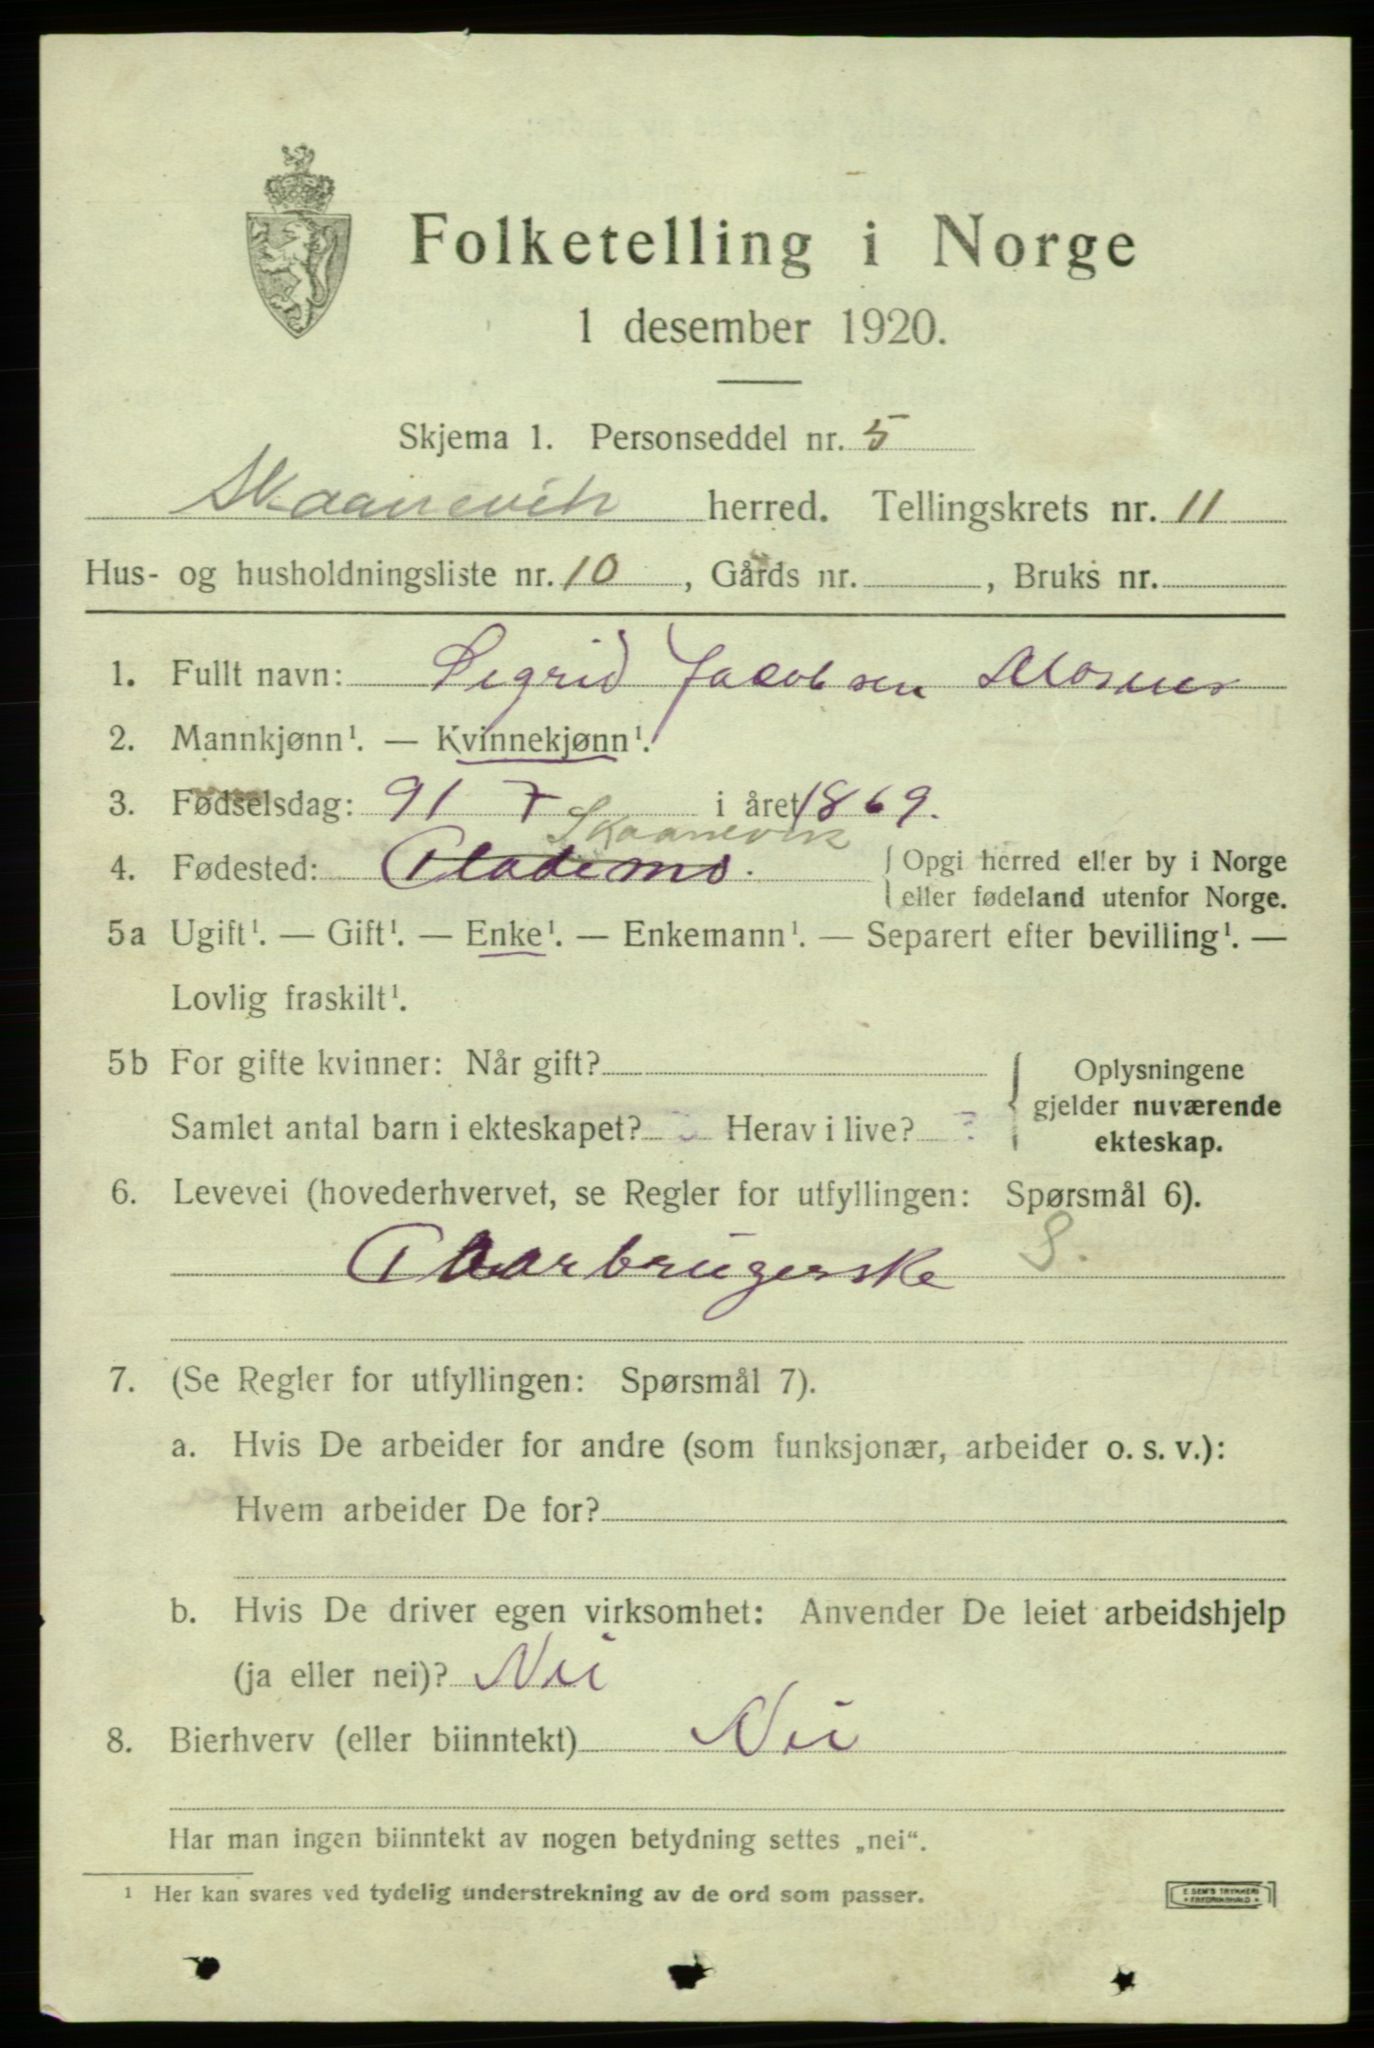 Folketelling i Norge
1 desember 1920.
Skjema 1. Personseddel nr. 5
Skaanevik herred. Tellingskrets nr. 11
Hus- og husholdningsliste nr. 10, Gårds nr. , Bruks nr.
1. Fullt navn: Sigrid Jacobsen
2. Mannkjønn¹. — Kvinnekjønn¹.
3. Fødselsdag: 7 i året 1869.
Skaanevik
4. Fødested: { Opgi herred eller by i Norge
eller fødeland utenfor Norge.
5a Ugift¹. — Gift¹. — Enke¹. — Enkemann¹. — Separert efter bevilling¹. —
Lovlig fraskilt¹.
5b For gifte kvinner: Når gift? Oplysningene
gjelder nuværende
Samlet antal barn i ekteskapet? Herav i live?
ekteskap.
6. Levevei (hovederhvervet, se Regler for utfyllingen: Spørsmål 6).
S.
7. (Se Regler for utfyllingen: Spørsmål 7).
a. Hvis De arbeider for andre (som funksjonær, arbeider o. s. v.):
Hvem arbeider De for?
b. Hvis De driver egen virksomhet: Anvender De leiet arbeidshjelp
(ja eller nei)? Nei
8. Bierhverv (eller biinntekt) Nei
Har man ingen biinntekt av nogen betydning settes „nei“.
¹ Her kan svares ved tydelig understrekning av de ord som passer.